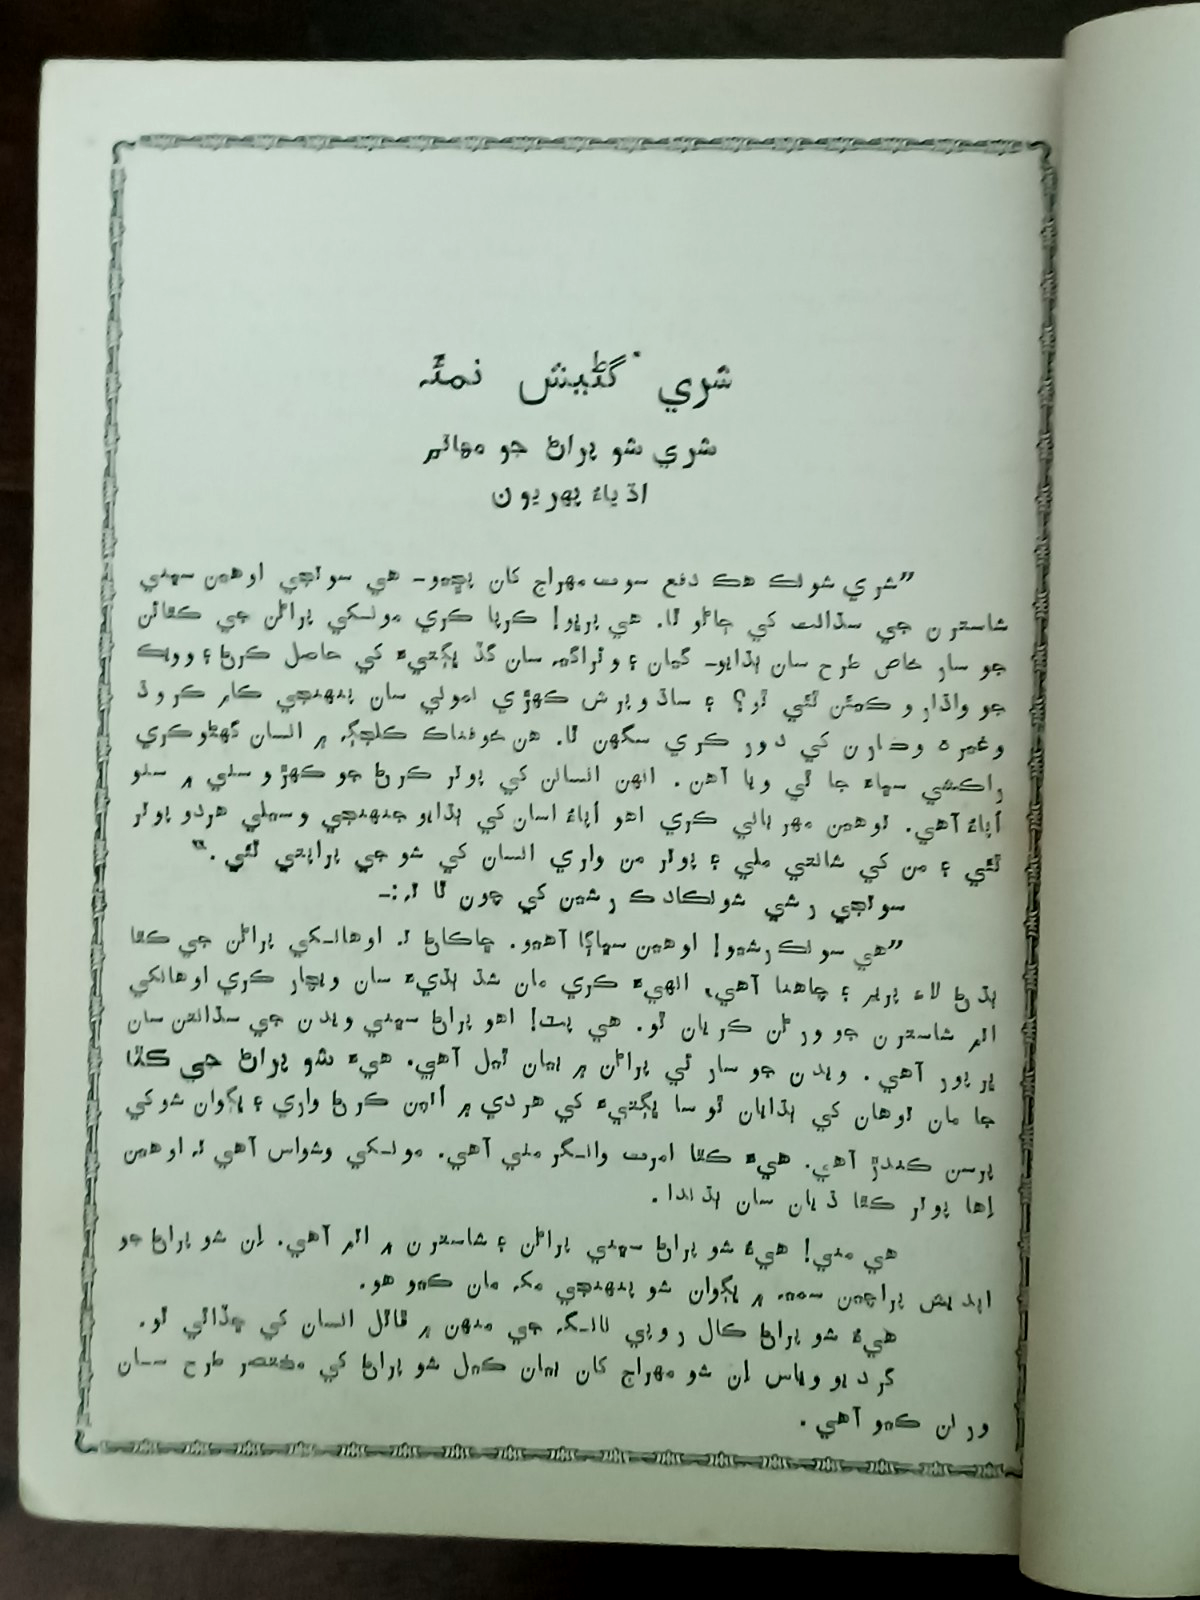 شري گڻيش نمئہ
شري شو پراڻ جو مهاتم
اڌياءُ پهريون
”شري شونڪ هڪ دفع سوت مهراج کان پڇيو۔ هي سوتجي اوهين سڀني
شاسترن جي سڌانت کي ڄاڻو ٿا. هي پربھو! ڪرپا ڪري مونکي پراڻن جي ڪٿائن
جو سار خاص طرح سان ٻڌايو۔ گيان ۽ ويراگيہ سان گڏ ڀڳتيءَ کي حاصل ڪرڻ ۽ وويڪ
جو واڌارو ڪيئن ٿئي ٿو؟ ۽ ساڌو پرش ڪهڙي نموني سان پنهنجي ڪام ڪروڌ
وغيره وڪارن کي دور ڪري سگهن ٿا. هن خوفناڪ ڪلجڳہ ۾ انسان گهڻو ڪري
راڪشي سڀاءَ جا ٿي ويا آهن. انهن انسانن کي پوتر ڪرڻ جو ڪهڙو سني ۾ سنو
اُپاءُ آهي. توهين مهرباني ڪري اهو اُپاءُ اسان کي ٻڌايو جنهنجي وسيلي هردو پوتر
ٿئي ۽ من کي شانتي ملي ۽ پوتر من واري انسان کي شو جي پراپتي ٿئي.“
سوتجي رشي شونڪادڪ رشين کي چون ٿا تہ:۔
”هي سونڪ رشيو! اوهين سڀاڳا آهيو. ڇاڪاڻ تہ اوهانکي پراڻن جي ڪٿا
ٻڌڻ لاءِ پريم ۽ چاهنا آهي، انهيءَ ڪري مان شڌ ٻڌيءَ سان ويچار ڪري اوهانکي
اتم شاسترن جو ورڻن ڪريان ٿو. هي پٽ! اهو پراڻ سڀني ويدن جي سڌانتن سان
ڀرپور آهي. ويدن جو سار ئي پراڻن ۾ بيان ٿيل آهي. هيءَ شو پراڻ جي ڪٿا
جا مان توهان کي ٻڌايان ٿو سا ڀڳتيءَ کي هردي ۾ اُتپن ڪرڻ واري ۽ ڀڳوان شو کي
پرسن ڪندڙ آهي. هيءَ ڪٿا امرت وانگر مٺي آهي. مونکي وشواس آهي تہ اوهين
اِها پوتر ڪٿا ڌيان سان ٻڌندا.
هي مني! هيءُ شو پراڻ سڀني پراڻن ۽ شاسترن ۾ اتم آهي. اِن شو پراڻ جو
اپديش پراچين سميہ ۾ ڀڳوان شو پنهنجي مکہ مان ڪيو هو.
هيءُ شو پراڻ ڪال روپي نانگہ جي منهن ۾ ڦاٿل انسان کي ڇڏائي ٿو.
گرديو وياس اِن شو مهراج کان بيان ڪيل شو پراڻ کي مختصر طرح سان
ورنن ڪيو آهي.